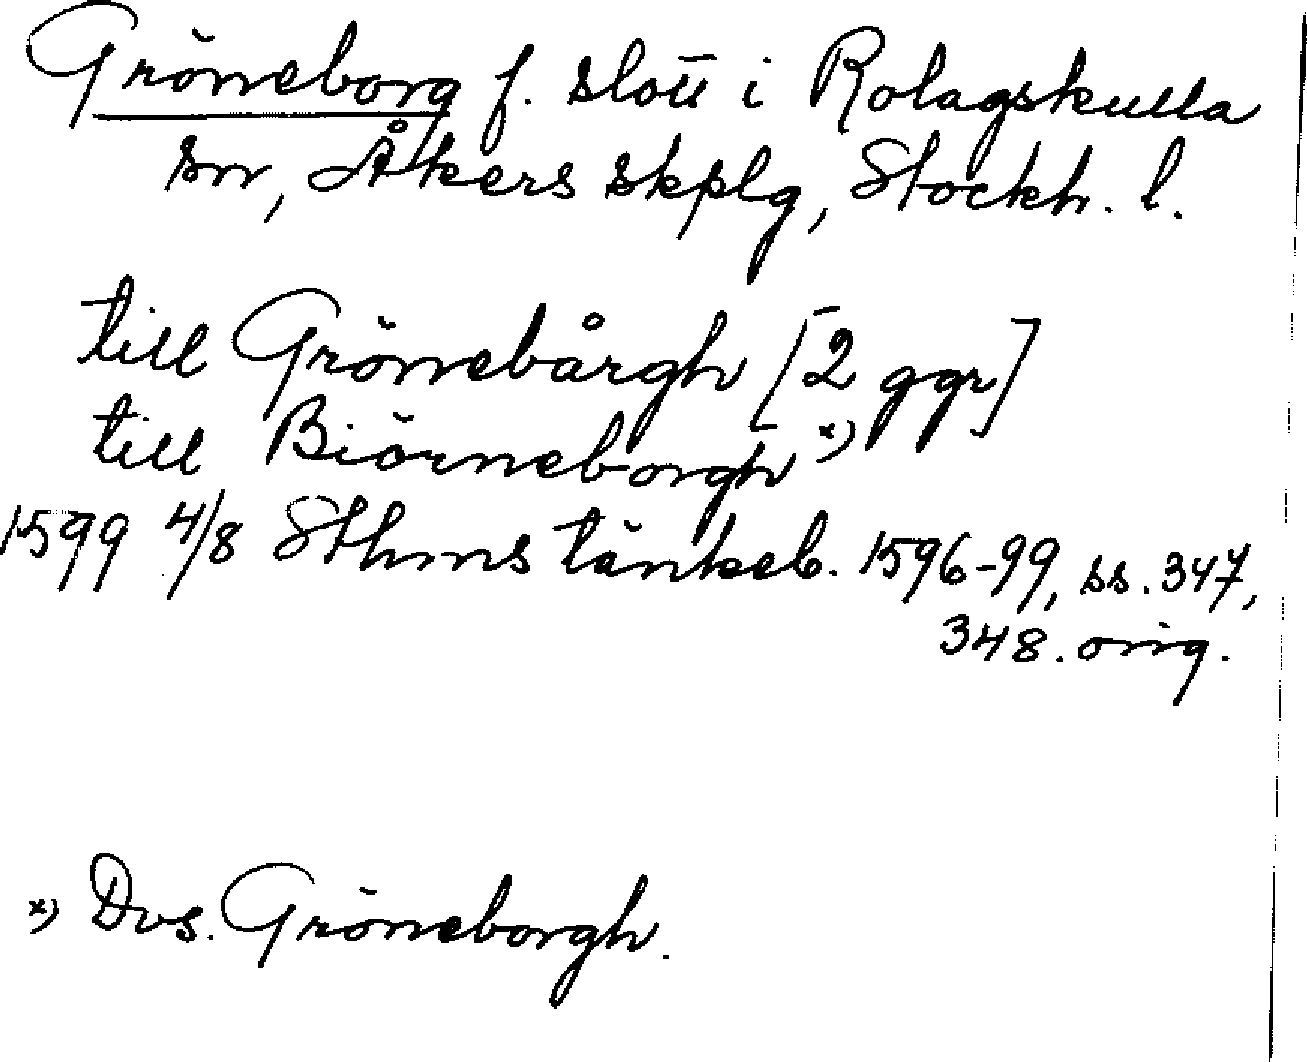 Gröneborg f. slott i Rolagskulla
sn, Åkers skplg, Stockh. l.
till Grönebårgh [2 ggr]
till Biörneborgh x)
1599 4/8 Sthms tänkeb. 1596-99, ss. 347,
348. orig.
x) Dvs. Gröneborgh.